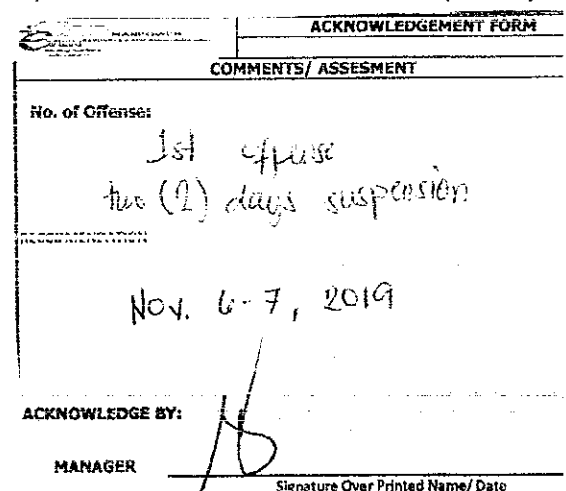 MANPOWER
ACKNOWLEDGEMENT FORM
COMMENTS/ ASSESMENT
No. of Offense:
1st offense
two (2) days suspension
RECOMMENDATION
Nov. 6-7, 2019
ACKNOWLEDGE BY:
MANAGER
Signature Over Printed Name/ Date